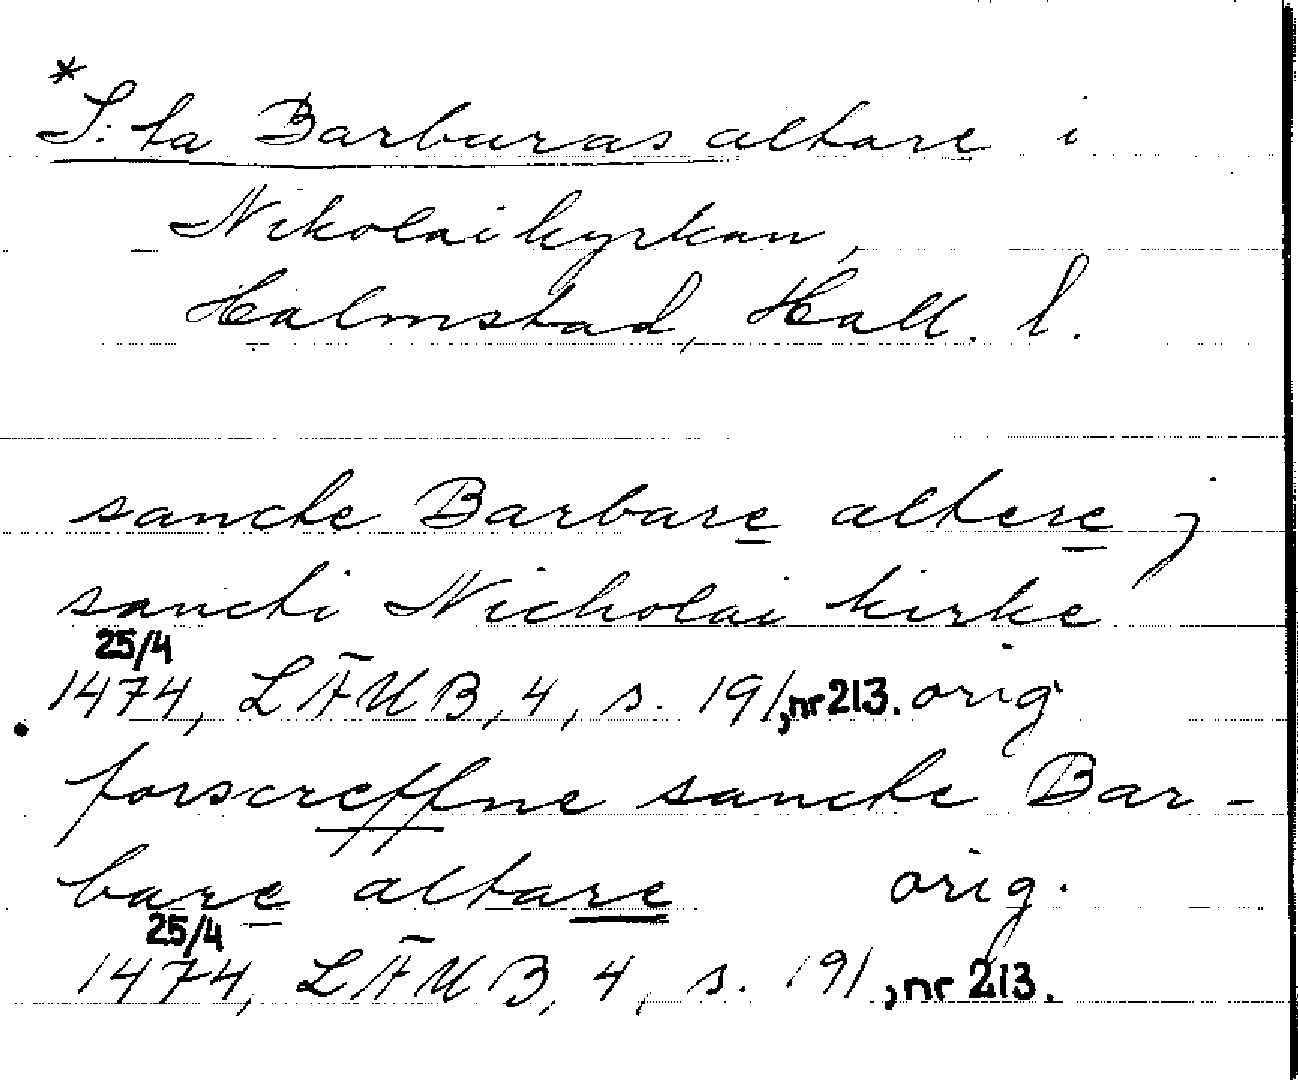 *
S:ta Barbaras altare i
Nikolaikyrkan,
Halmstad, Hall. l.
sancte Barbare altere j
sancti Nicholai kirke
25/4
1474, LÄUB, 4, s. 191, nr 213. orig
forscreffne sancte Bar-
bare altare orig.
25/4
1474, LÄUB, 4, s. 191, nr 213.